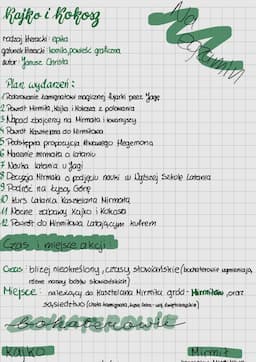 Kajko i Kokosz
Na egzamin
rodzaj literacki: epika
gatunek literacki: komiks, powieść graficzna
autor: Janusz Christa
Plan wydarzeń:
1 Podarowanie Łamignatowi magicznej fujarki przez Jagę
2 Powrót Mirmiła, Kajka i Kokosza z polowania
3 Napad zbójcerzy na Mirmiła i towarzyszy
4 Powrót Kasztelana do Mirmiłowa
5 Podstępna propozycja Krwawego Hegemona
6 Marzenie Mirmiła o lataniu
7 Nauka latania u Jagi
8 Decyzja Mirmiła o podjęciu nauki w Wyższej Szkole Latania
9 Podróż na Łysą Górę
10 Kurs Latania Kasztelana Mirmiła
11 Nocne zabawy Kajka i Kokosza
12 Powrót do Mirmiłowa, latającym kufrem
Czas i miejsce akcji
Czas: bliżej nieokreślony, czasy słowiańskie (bohaterowie wymieniają różne nazwy bóstw słowiańskich)
Miejsce: należący do Kasztelana Mirmiła gród - Mirmiłowo, oraz
sąsiedztwo
bohaterowie
Kajko
Mirmił